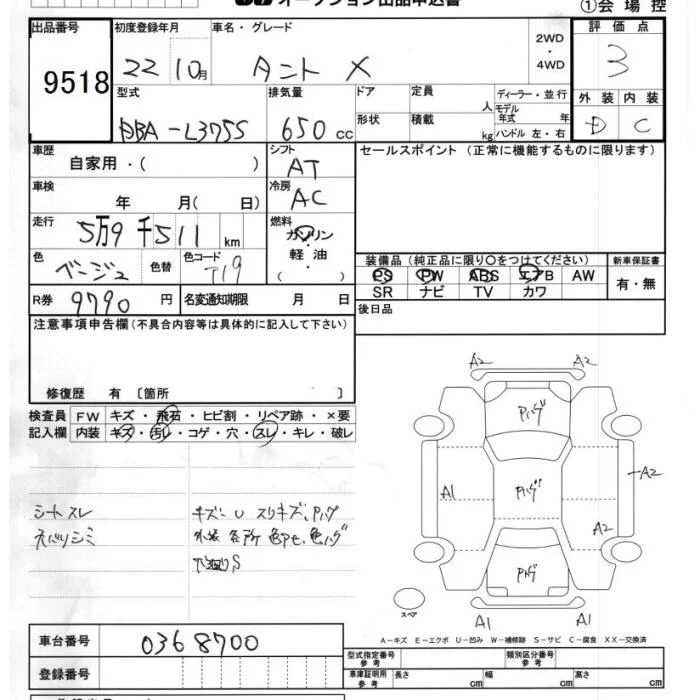 オークション出品申込書
①会場控
出品番号
9518
初度登録年月
22 10月
車名・グレード
タント X
2WD
・
4WD
評価点
3
外装 内装
D C
型式
DBA-L375S
排気量
650 cc
ドア
形状
定員 人
積載 kg
ディーラー・並行
モデル年式 年
ハンドル 左・右
車歴
自家用・( )
シフト
AT
車検
年 月( 日)
冷房
AC
走行
5万9千511 km
燃料
ガソリン
・
軽油
・
色
ベージュ
色替
色コード
T19
R券 9790 円
名変通知期限 月 日
セールスポイント(正常に機能するものに限ります)
装備品(純正品に限り〇をつけてください)
PS PW ABS エアB AW
SR ナビ TV カワ
新車保証書
有・無
後日品
注意事項申告欄(不具合内容等は具体的に記入して下さい)
修復歴 有 〔箇所 〕
検査員記入欄
FW キズ・飛石・ヒビ割・リペア跡・×要
内装 キズ・汚レ・コゲ・穴・スレ・キレ・破レ
シートスレ
キズ-U スリキズ、Pハゲ
外装 各所 色ハゲ
S
A2 A2
Pハゲ
A1 Pハゲ A2
A2
Pハゲ
スペア
A1 A1
A-キズ E-エクボ U-凹み W-補修跡 S-サビ C-腐食 XX-交換済
車台番号
0368700
登録番号
型式指定番号
参考
類別区分番号
参考
車庫証明用
参考
長さ cm
幅 cm
高さ cm